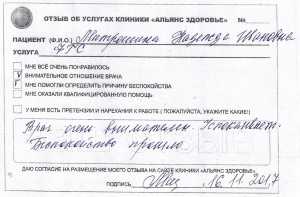 ОТЗЫВ ОБ УСЛУГАХ КЛИНИКИ «АЛЬЯНС ЗДОРОВЬЕ» №
ПАЦИЕНТ (Ф.И.О.) Митрошина Надежда Ивановна
УСЛУГА ФГС
МНЕ ВСЁ ОЧЕНЬ ПОНРАВИЛОСЬ
V ВНИМАТЕЛЬНОЕ ОТНОШЕНИЕ ВРАЧА
МНЕ ПОМОГЛИ ОПРЕДЕЛИТЬ ПРИЧИНУ БЕСПОКОЙСТВА
МНЕ ОКАЗАЛИ КВАЛИФИЦИРОВАННУЮ ПОМОЩЬ
У МЕНЯ ЕСТЬ ПРЕТЕНЗИИ И НАРЕКАНИЯ К РАБОТЕ ( ПОЖАЛУЙСТА, УКАЖИТЕ КАКИЕ!)
Врач очень внимателен. Успокаивает.
Беспокойство прошло
ДАЮ СОГЛАСИЕ НА РАЗМЕЩЕНИЕ МОЕГО ОТЗЫВА НА САЙТЕ КЛИНИКИ «АЛЬЯНС ЗДОРОВЬЕ»
ПОДПИСЬ 16.11.2017